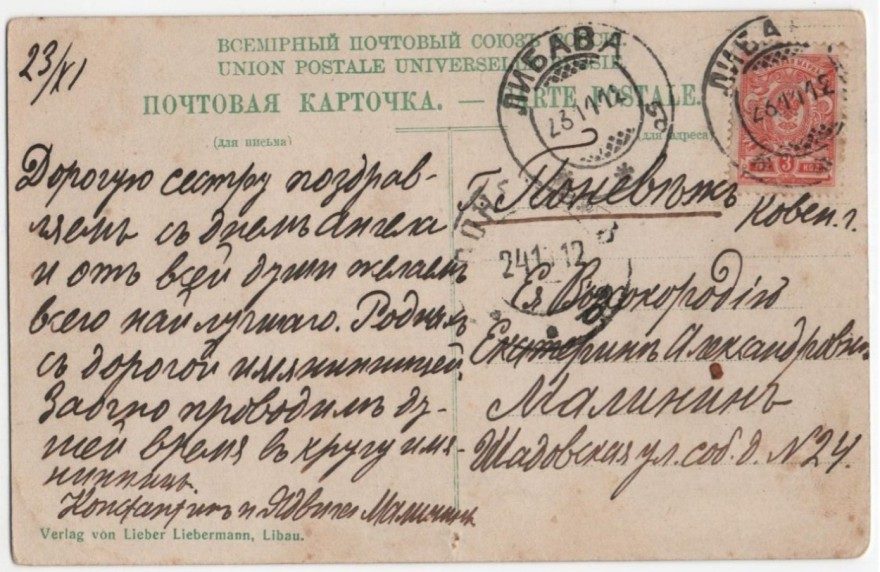 23/XI
ВСЕМІРНЫЙ ПОЧТОВЫЙ СОЮЗЪ
UNION POSTALE UNIVERSELLE
ПОЧТОВАЯ КАРТОЧКА. — CARTE POSTALE.
(для письма)
(для адреса)
ЛИБАВА
23 11 12
ЛИБА
23 11 12
3
24 1 12
Дорогую сестру поздрав-
ляемъ съ днемъ Ангела
и отъ всей души желаемъ
всего найлучшаго. Родныхъ
съ дорогой имянинницей.
Заочно проводимъ ду-
шей время въ кругу имя-
нинницъ.
Константинъ и Ядвига Малинины
Г. Поневѣжъ
Ковен. г.
Ея Высокородію
Екатеринѣ Александровнѣ
Малининъ
Шадовская ул. соб. д. N24.
Verlag von Lieber Liebermann, Libau.